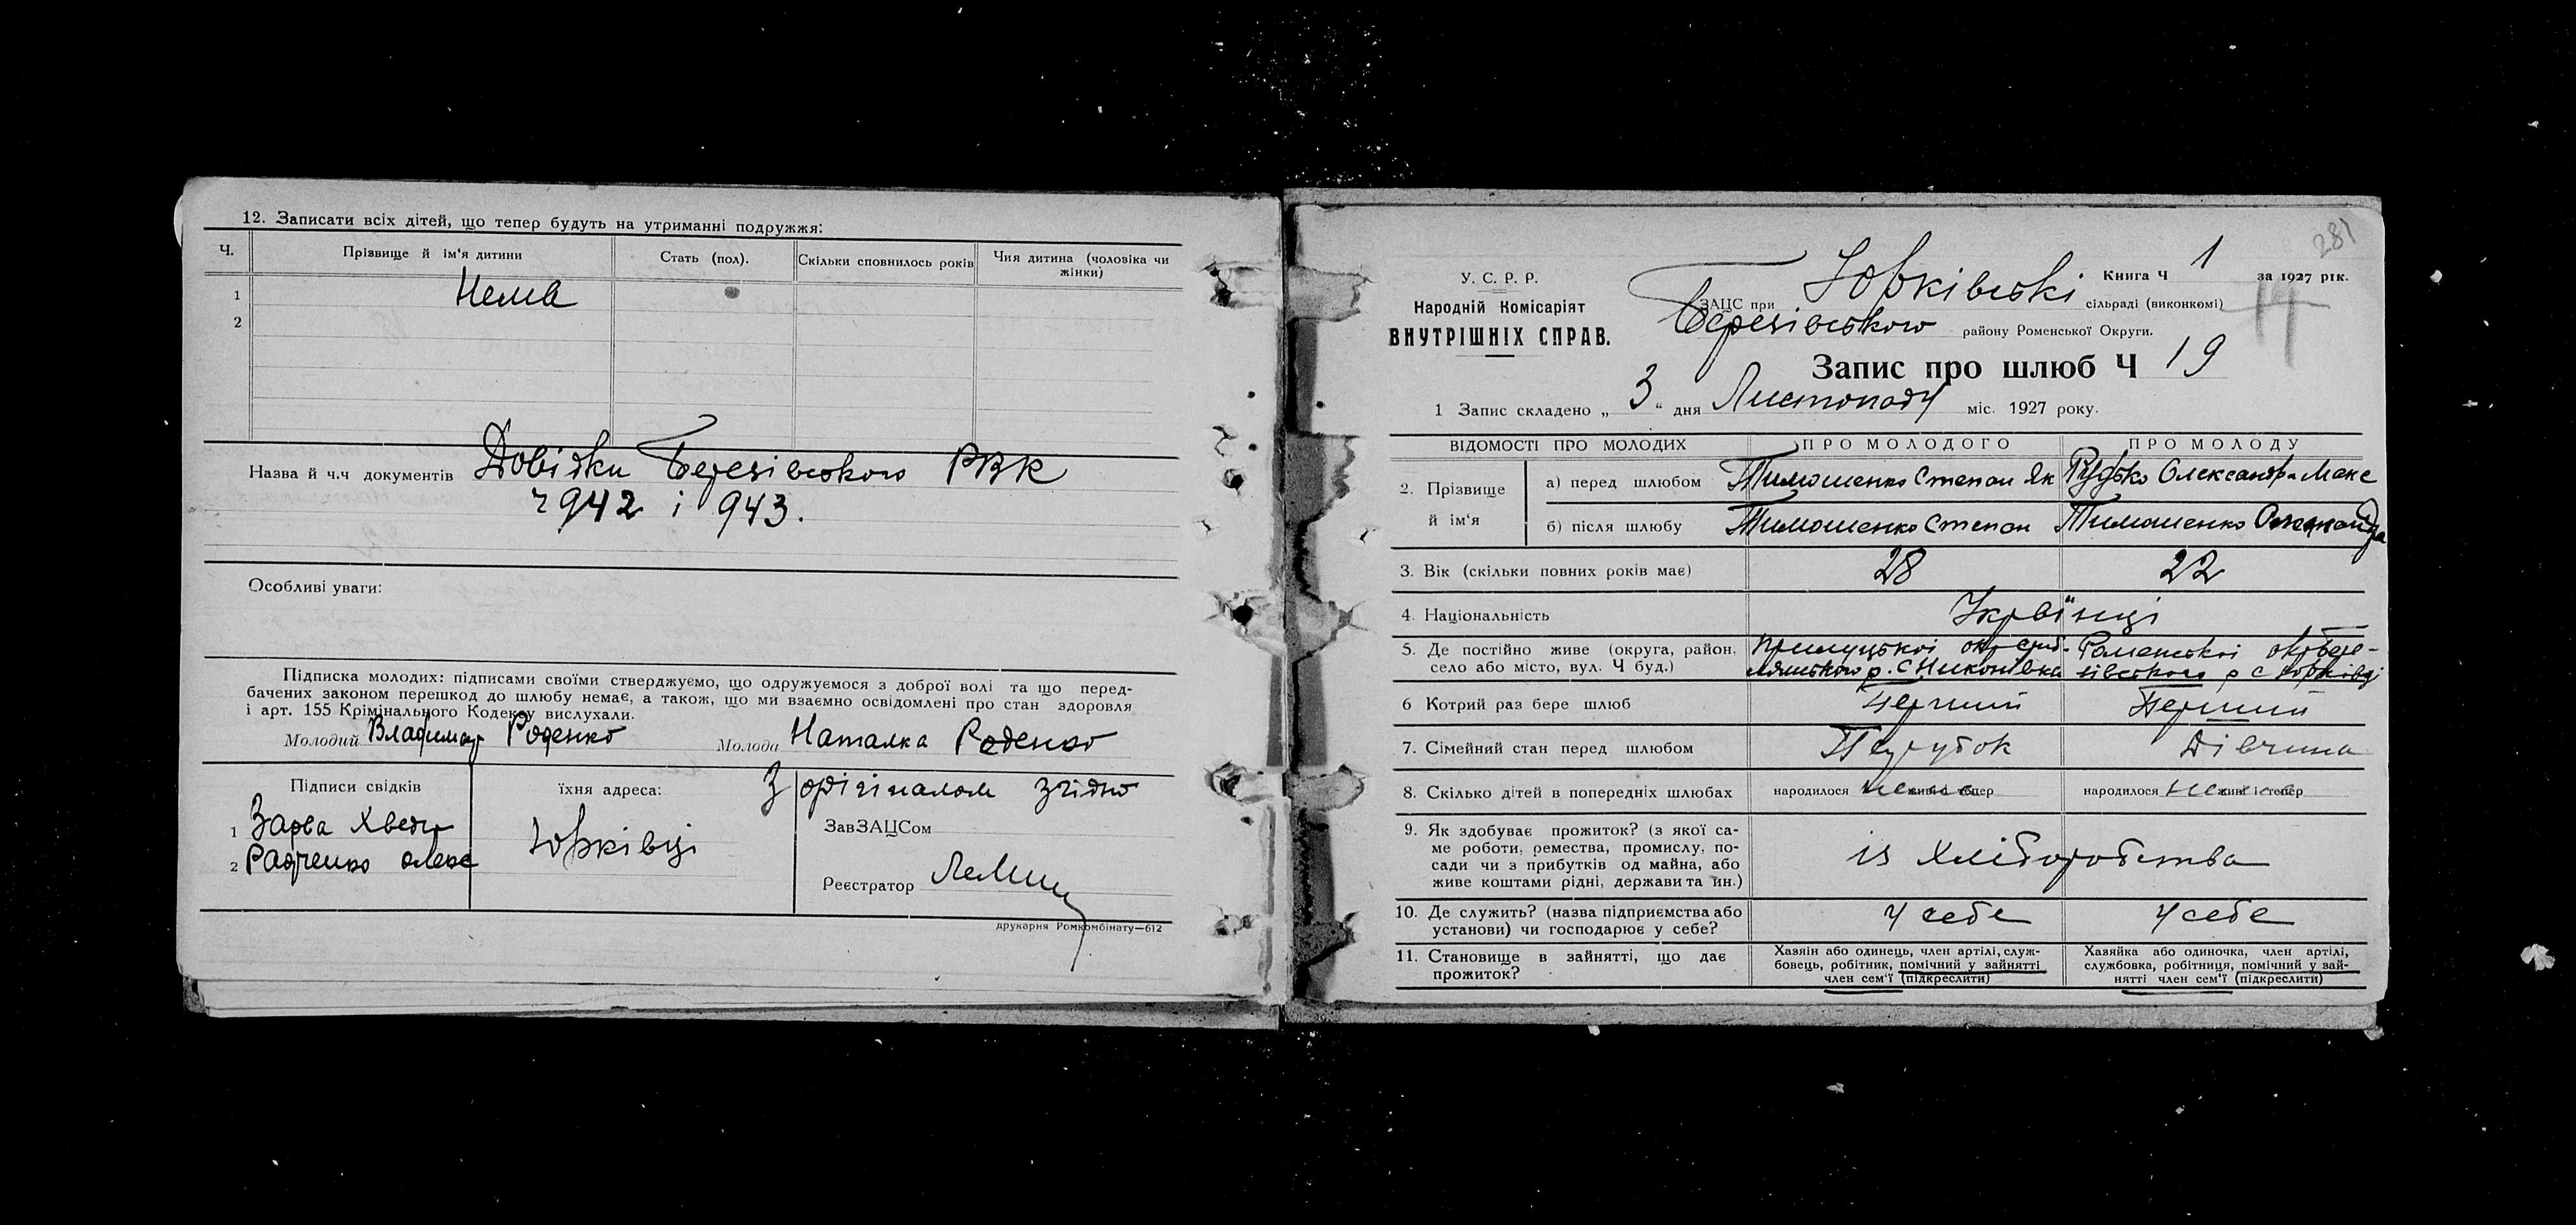 12. Записати всіх дітей, що тепер будуть на утриманні подружжя:
Ч. Прізвище й ім'я дитини Стать (пол). Скільки сповнилось років Чия дитина (чоловіка чи жінки)
1 Нема
2
Назва й ч.ч документів Довідки Березівського РВК
ч 942 і 943.
Особливі уваги:
Підписка молодих: підписами своїми стверджуємо, що одружуємося з доброї волі та що перед-
бачених законом перешкод до шлюбу немає, а також, що ми взаємно освідомлені про стан здоровля
і арт. 155 Крімінального Кодексу вислухали.
Молодий Владимир Роденко Молода Наталка Роденко
Підписи свідків їхня адреса: З орігіналом згідно
1 Зарва Хведір Юрківці ЗавЗАЦСом
2 Радченко Олекс
Реєстратор
друкарня Ромкомбінату—612
281
У. С. Р. Р.
Народній Комісаріят
ВНУТРІШНІХ СПРАВ.
Книга Ч 1 за 1927 рік.
ЗАЦС при Юрківські сільраді (виконкомі)
Березівського району Роменської Округи.
Запис про шлюб Ч 19
1 Запис складено „ 3 “ дня Листопаду міс. 1927 року.
ВІДОМОСТІ ПРО МОЛОДИХ ПРО МОЛОДОГО ПРО МОЛОДУ
2. Прізвище й ім'я а) перед шлюбом Тимошенко Степан Як Рудько Олександра Макс
б) після шлюбу Тимошенко Степан Тимошенко Олександра
3. Вік (скільки повних років має) 28 22
4. Національність Українці
5. Де постійно живе (округа, район, Прилуцької окр Сриб- Роменської окр Бере-
село або місто, вул. Ч буд.) нянського р. С Никонівка зівського р с Юрківці
6 Котрий раз бере шлюб Перший Перший
7. Сімейний стан перед шлюбом Парубок Дівчина
8. Скілько дітей в попередніх шлюбах народилося нема живі і тепер народилося нема живі і тепер
9. Як здобуває прожиток? (з якої са-
ме роботи, ремества, промислу, по-
сади чи з прибутків од майна, або
живе коштами рідні, держави та ин.)
із хліборобства
10. Де служить? (назва підприємства або
установи) чи господарює у себе?
у себе у себе
11. Становище в зайнятті, що дає
прожиток?
Хазяїн або одинець, член артілі, служ-
бовець, робітник, помічний у зайнятті
член сем'ї (підкреслити)
Хазяйка або одиночка, член артілі,
службовка, робітниця, помічний у зай-
нятті член сем'ї (підкреслити)